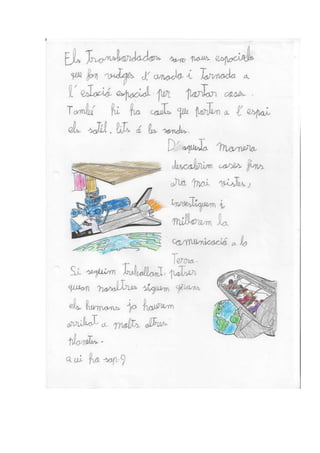 Els transbordadors son naus espacials
que fan viatges d'anada i tornada a
l'estació espacial per portar coses.
També hi ha coets que porten a l'espai
els satèl.lits ó les sondes.
D'aquesta manera
descobrim coses fins
ara mai vistes,
investiguem i
millorem la
comunicació a la
Terra.
Si seguim treballant, potser
quan nosaltres siguem grans
els humans ja haurem
arribat a molts altres
planetes.
Qui ho sap?